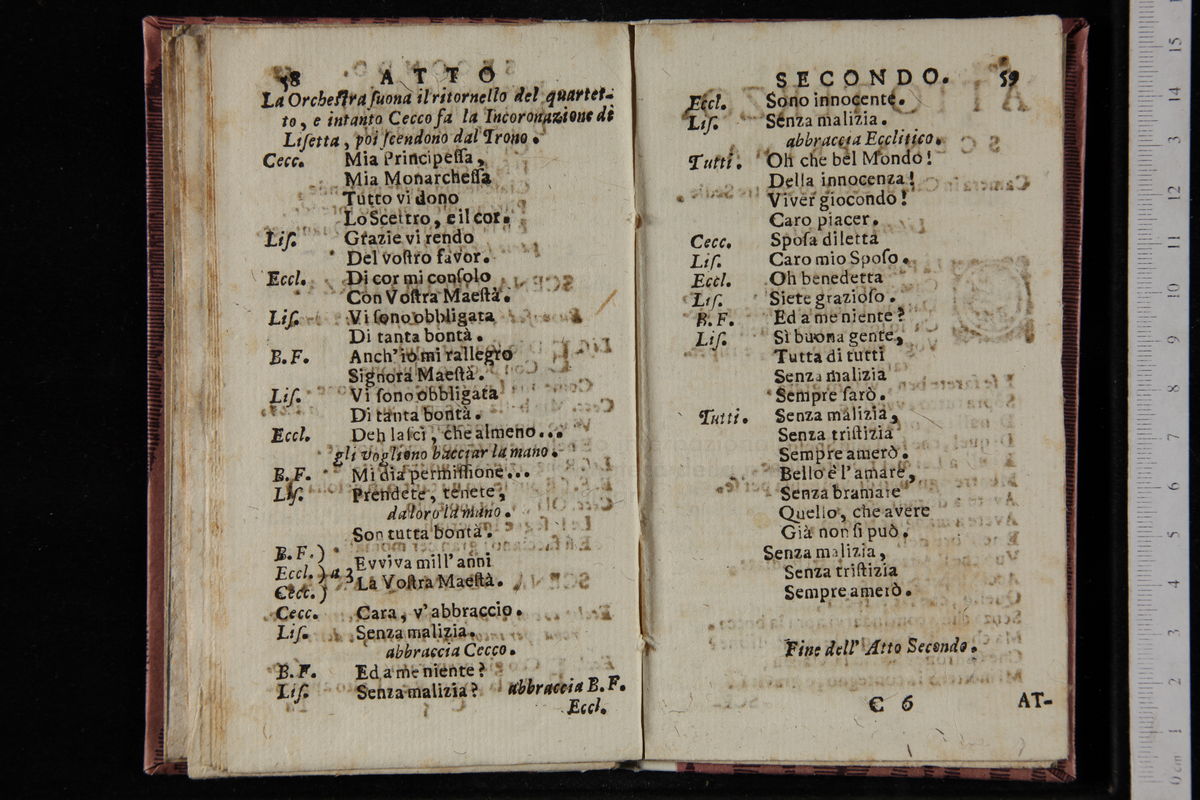 58 ATTO
La Orcheſtra ſuona il ritornello del quartet-
to, e intanto Cecco fa la Incoronazione di
Liſetta, poi ſcendono dal Trono.
Cecc. Mia Principeſſa,
Mia Monarcheſſa
Tutto vi dono
Lo Scettro, e il cor.
Liſ. Grazie vi rendo
Del voſtro favor.
Eccl. Di cor mi conſolo
Con Voſtra Maeſtà.
Liſ. Vi ſono obbligata
Di tanta bontà.
B. F. Anch'io mi rallegro
Signora Maeſtà.
Liſ. Vi ſono obbligata
Di tanta bontà.
Eccl. Deh laſci, che almeno...
gli vogliono bacciar la mano.
B. F. Mi dia permiſſione...
Liſ. Prendete, tenete,
da loro la mano.
Son tutta bontà.
B. F. )
Eccl. ) a 3 Evviva mill'anni
Cecc. ) La Voſtra Maeſtà.
Cecc. Cara, v'abbraccio.
Liſ. Senza malizia.
abbraccia Cecco.
B. F. Ed a me niente?
Liſ. Senza malizia? abbraccia B. F.
Eccl.
SECONDO. 59
Eccl. Sono innocente.
Liſ. Senza malizia.
abbraccia Ecclitico.
Tutti. Oh che bel Mondo!
Della innocenza!
Viver giocondo!
Caro piacer.
Cecc. Spoſa diletta
Liſ. Caro mio Spoſo.
Eccl. Oh benedetta
Liſ. Siete grazioſo.
B. F. Ed a me niente?
Liſ. Sì buona gente,
Tutta di tutti
Senza malizia
Sempre ſarò.
Tutti. Senza malizia,
Senza triſtizia
Sempre amerò.
Bello è l'amare,
Senza bramare
Quello, che avere
Già non ſi può.
Senza malizia,
Senza triſtizia
Sempre amerò.
Fine dell' Atto Secondo.
C 6 AT-
15
14
13
12
11
10
9
8
7
6
5
4
3
2
1
0 cm